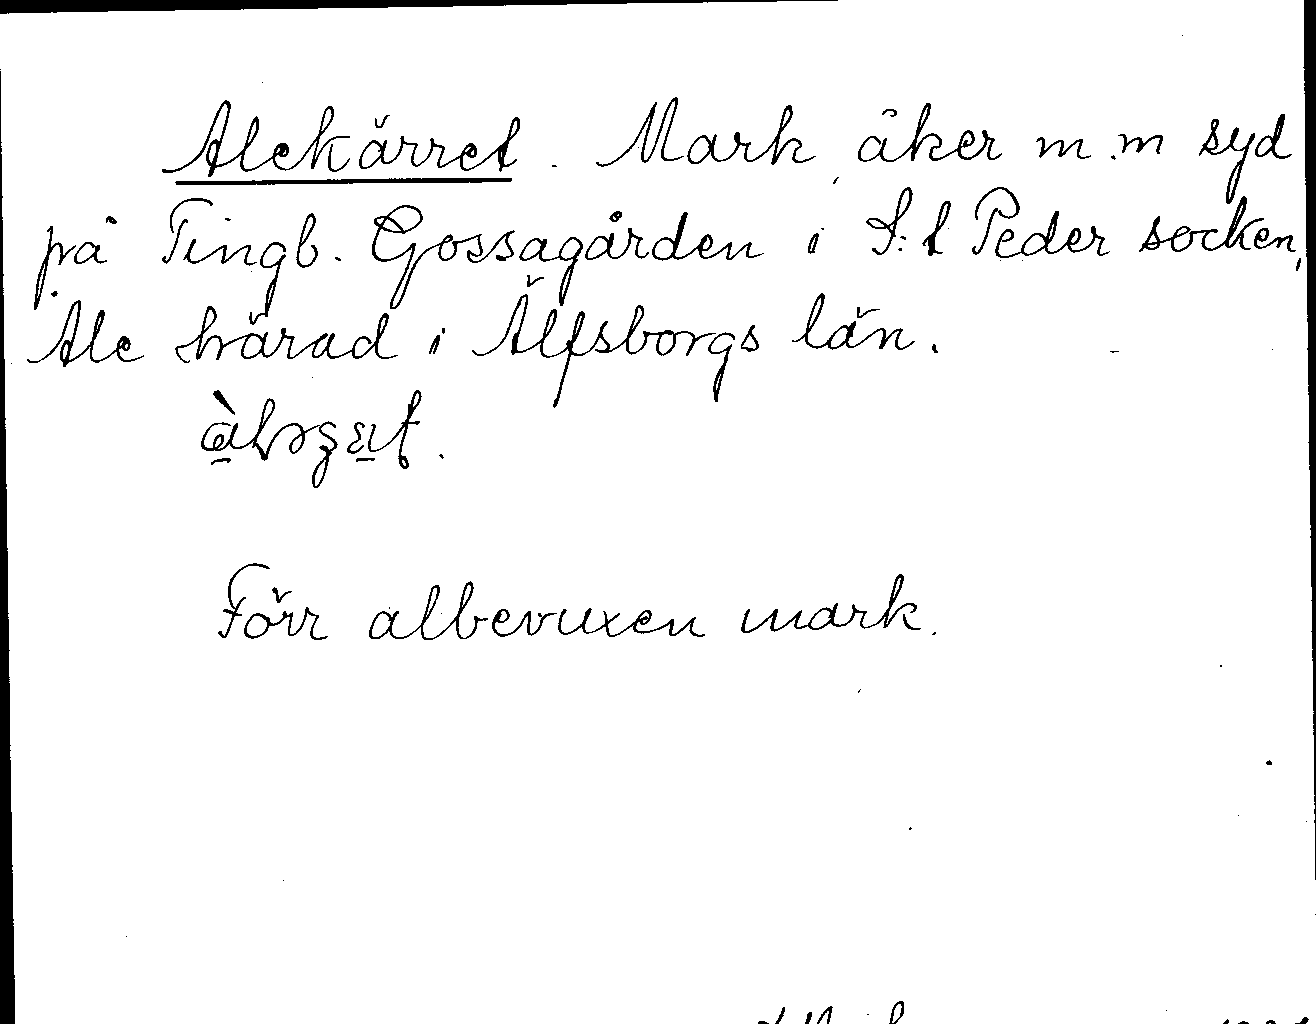 Alekärret. Mark, åker m.m syd
på Tingb. Gossagården i S:t Peder socken,
Ale härad i Älfsborgs län.
Förr albevuxen mark.